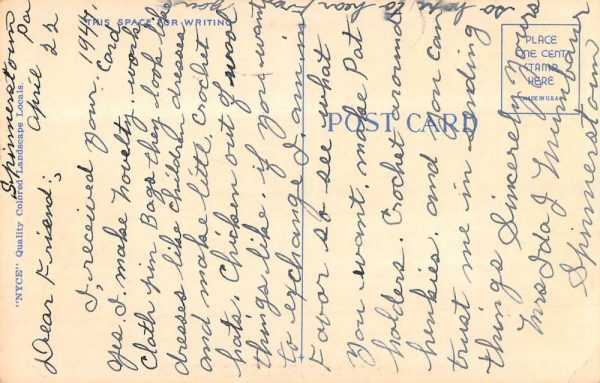 THIS SPACE FOR WRITING
POST CARD
PLACE
ONE CENT
STAMP
HERE
MADE IN U.S.A.
"NYCE" Quality Colored Landscape Locals.
Spinnerstown Pa
April 22 1944.
Dear Friend;
I, received your Card
yes, I. make novelty. work
Cloth pin Bags they look like
dresses like children dresses
and make little Crochet
hats. Chicken out of wool
things like. if you want
to exchange I. am in
Favor so see what
You want. make Pat
holders. Crochet around
henkies. and you can
trust me in sending
things Sincerely Yours
Mrs Ida J Mumbauer
Spinnerstown
so hope to hear from
you